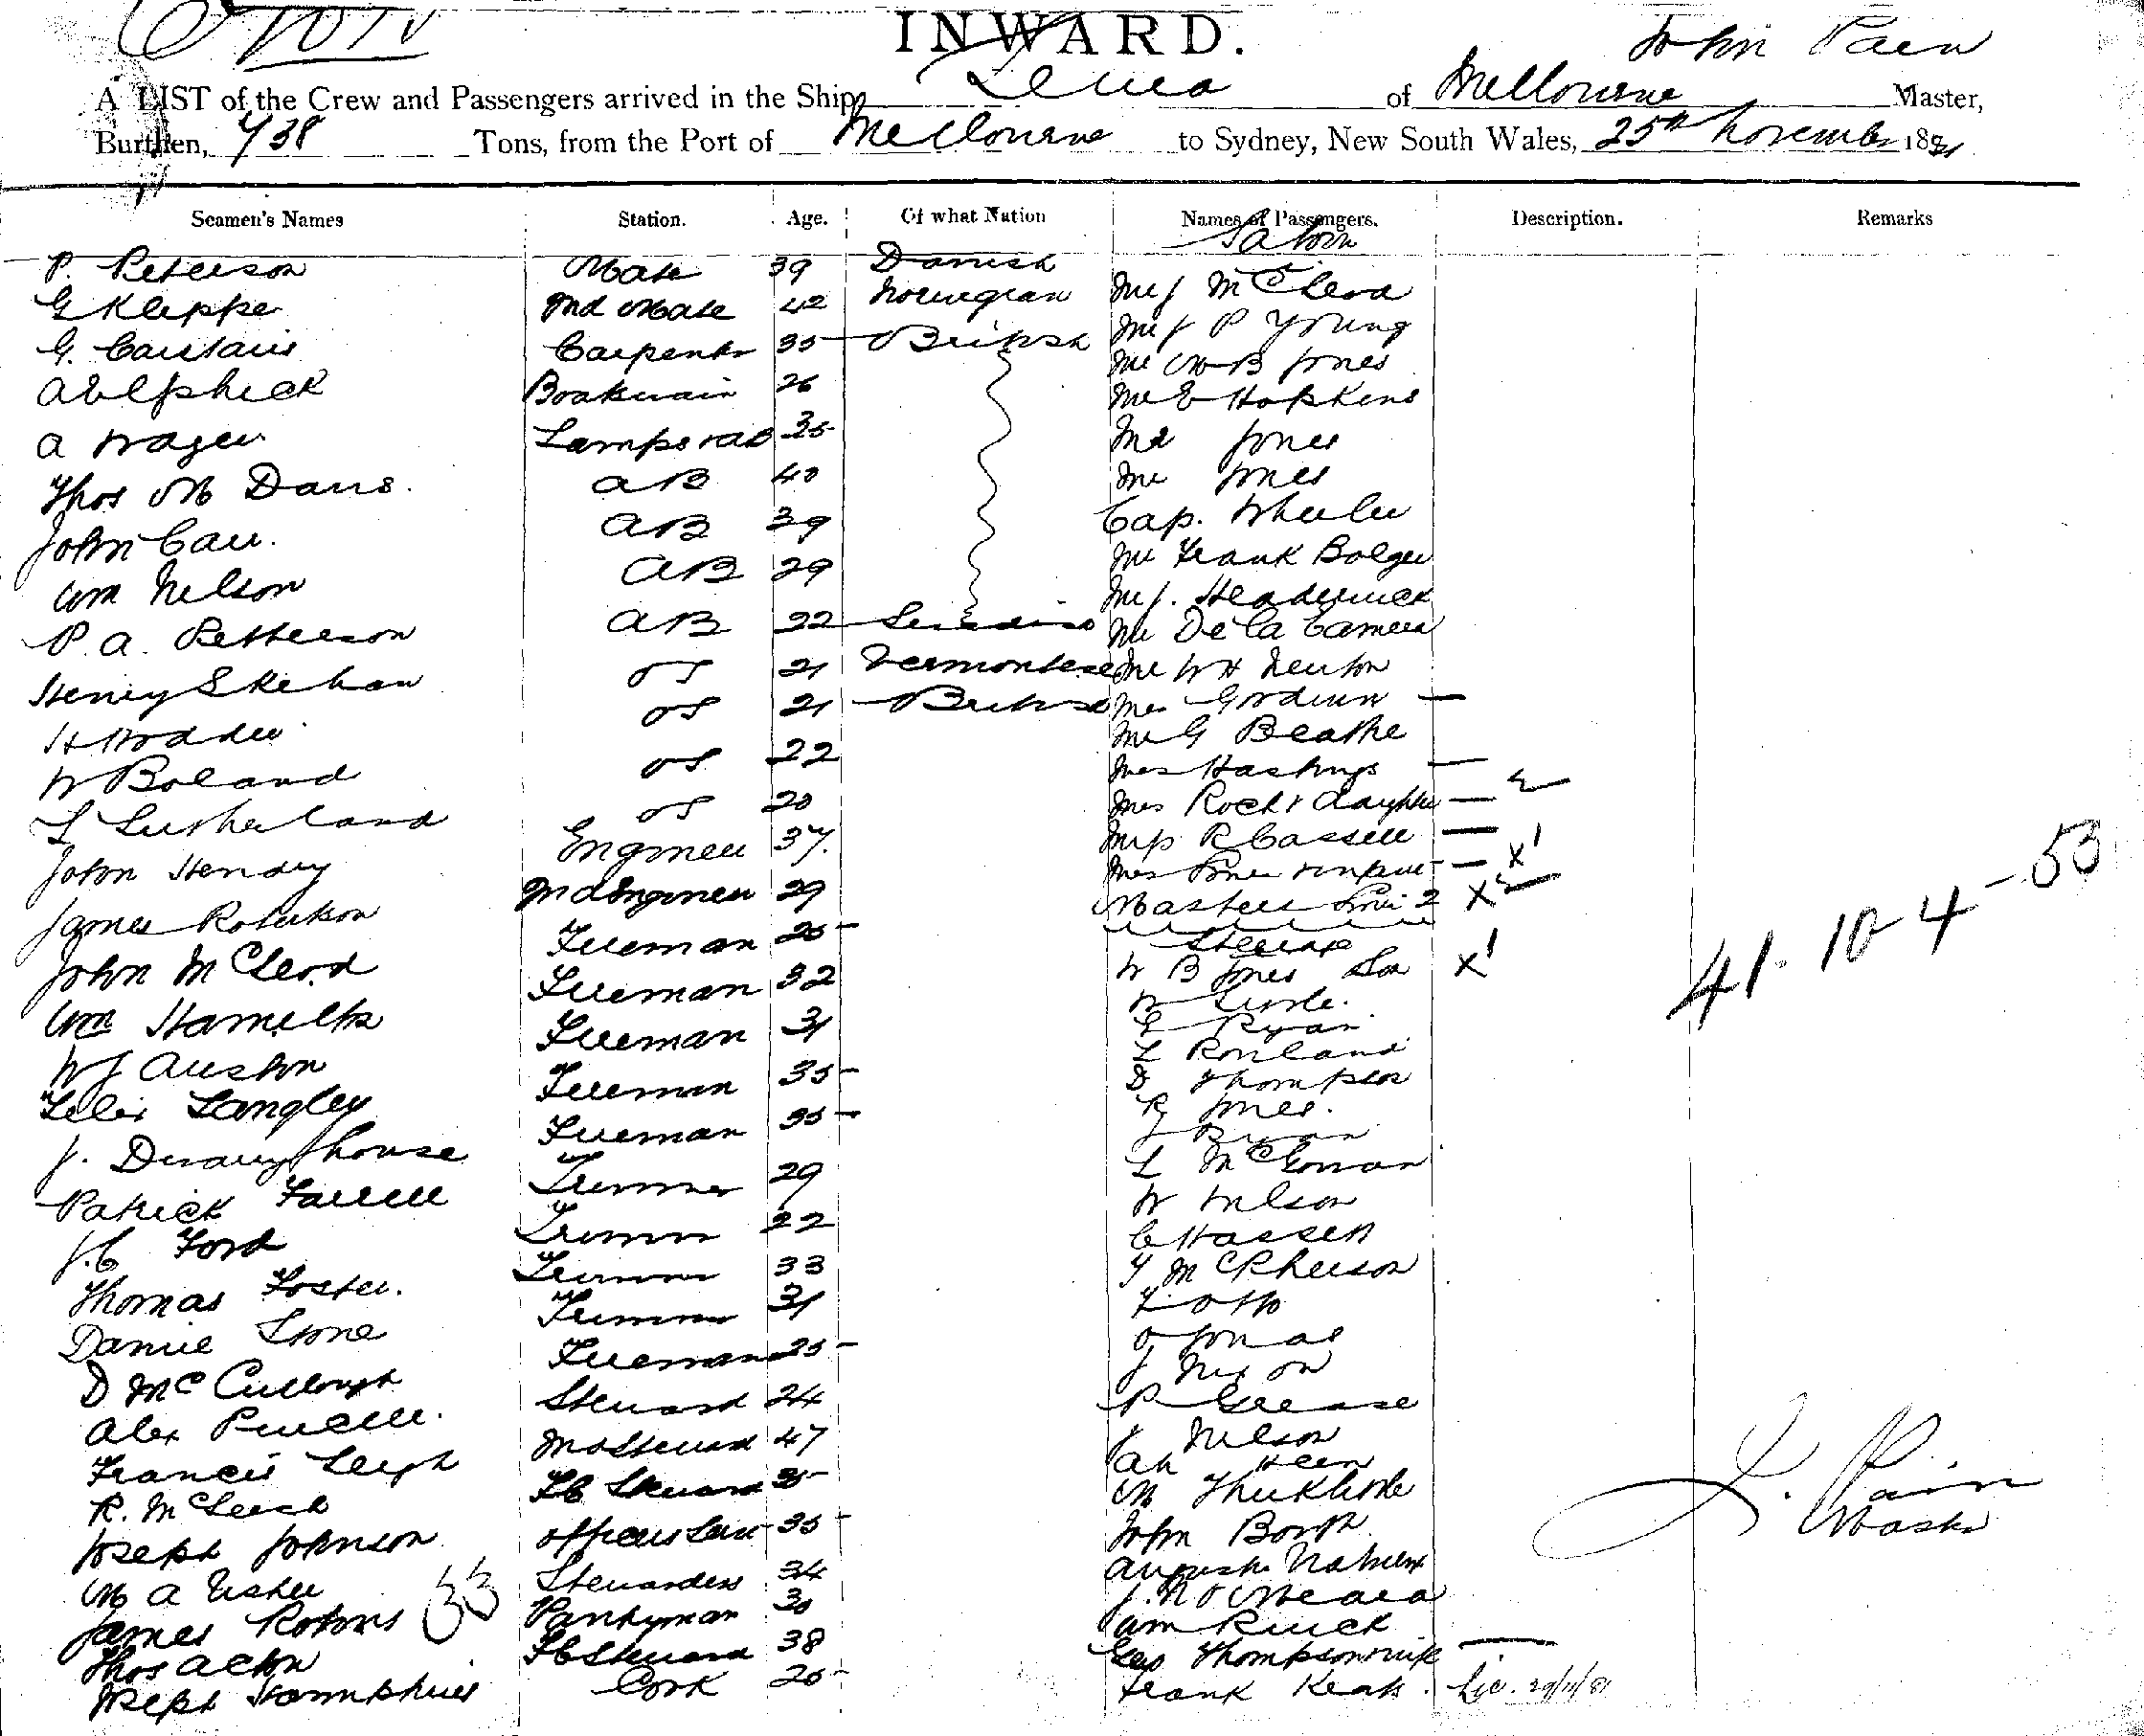 INWARD.
John Pain
A LIST of the Crew and Passengers arrived in the Ship of Melbourne Master,
Burthen, 738 Tons, from the Port of Melbourne to Sydney, New South Wales, 25th November 1881
Seamen's Names Station. Age. Of what Nation Names of Passengers. Description. Remarks
Saloon
P. Peterson Mate 39 Danish
G Kleppe 2nd Mate 42 Norwegian Mr J McLeod
G. Carstairs Carpenter 35 British Mr J P Young
A Elphick Boatswain 26 Mr W B Jones
Mr E Hopkins
A Wager Lamps & AB 35 Mr Jones
Thos M Davis. AB 40 Mr Jones
John Carr. AB 39 Cap. Wheeler
Wm Nelson AB 29 Mr Frank Bolger
Mr J. Headerwick
P. A. Petterson AB 22 Mr De La Camera
Henry Skehan OS 21 Mr W H Newton
H Hodder OS 21 British Mrs
W Boland OS 22 Mr G Beathe
Mrs Hastings
L Sutherland OS 20 Mrs Rock & daughter
John Hendry Engineer 37. Miss R Cassell
Mrs X1
James Robertson 2nd Engineer 29 Masters 2 X2
John McLeod Fireman 25 Steerage
Wm Hamilton Fireman 32 W B Jones X1
41-10-4-53
W J Auston Fireman 31 W
Ryan
L Rowland
Felix Langley Fireman 35 D Thompson
J. house Fireman 35 R Jones.
Patrick Farrell Trimmer 29 L McGowan
J. C Ford Trimmer 22 W Nelson
C Hassen
Thomas Foster. Trimmer 33 McPherson
Daniel Stone Trimmer 31 F Otto
D McCullough Fireman 25 O Jonas
J Nixon
Alex Purcell. Steward 24 P Grease
Francis Leigh 2nd Steward 47 Nelson
R. McLeech F C Steward 35 Ah
M
Joseph Johnson Officers Serv 35 John
M A Usher Stewardess 34 August
33
James Robins Pantryman 30 J. N O'Meara
Thos Acton F C Steward 38 Wm
Geo Thompson & wife
Joseph Humphries Cook 25 Frank Keats. 29/11/81
J. Pain
Master